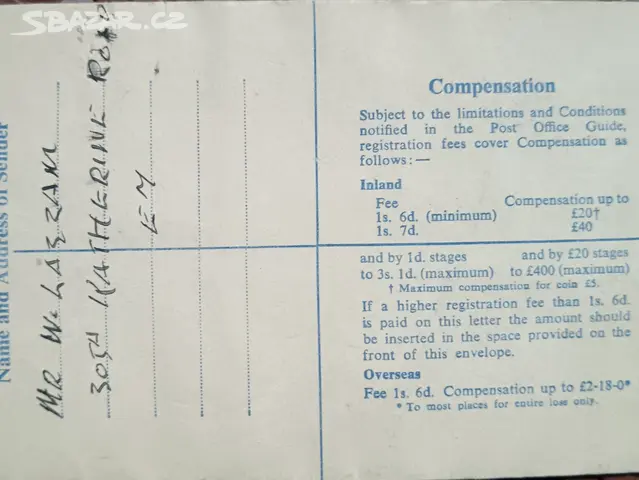 SBAZAR.CZ
Name and Address of Sender
MR W. LAZZANI
305A KATHERINE ROAD
Compensation
Subject to the limitations and Conditions
notified in the Post Office Guide,
registration fees cover Compensation as
follows:—
Inland
Fee Compensation up to
1s. 6d. (minimum) £20†
1s. 7d. £40
and by 1d. stages and by £20 stages
to 3s. 1d. (maximum) to £400 (maximum)
† Maximum compensation for coin £5.
If a higher registration fee than 1s. 6d.
is paid on this letter the amount should
be inserted in the space provided on the
front of this envelope.
Overseas
Fee 1s. 6d. Compensation up to £2-18-0*
* To most places for entire loss only.